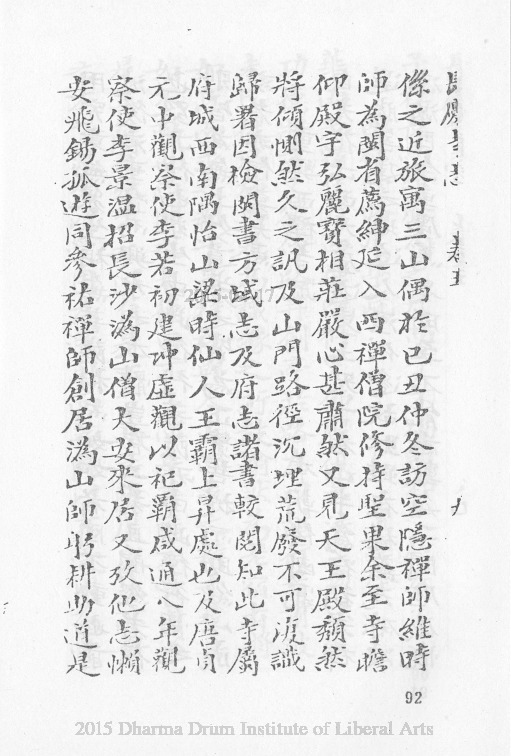 長慶寺志 卷五 九
係之近旅寓三山偶於已丑仲冬訪空隱禪師維時
師為閩省薦紳延入西禪僧院修持聖果余至寺瞻
仰殿宇弘麗寶相莊嚴心甚肅然又見天王殿頹然
將傾惻然久之訊及山門路徑沉埋荒廢不可復識
歸署因檢閱書方域志及府志諸書較閱知此寺屬
府城西南隅怡山梁時仙人王霸上昇處也及唐貞
元中觀察使李若初建沖虛觀以祀霸咸通八年觀
察使李景溫招長沙溈山僧大安來居又攷他志懶
安飛錫孤遊同參祐禪師創居溈山師躬耕助道是
92
2015 Dharma Drum Institute of Liberal Arts